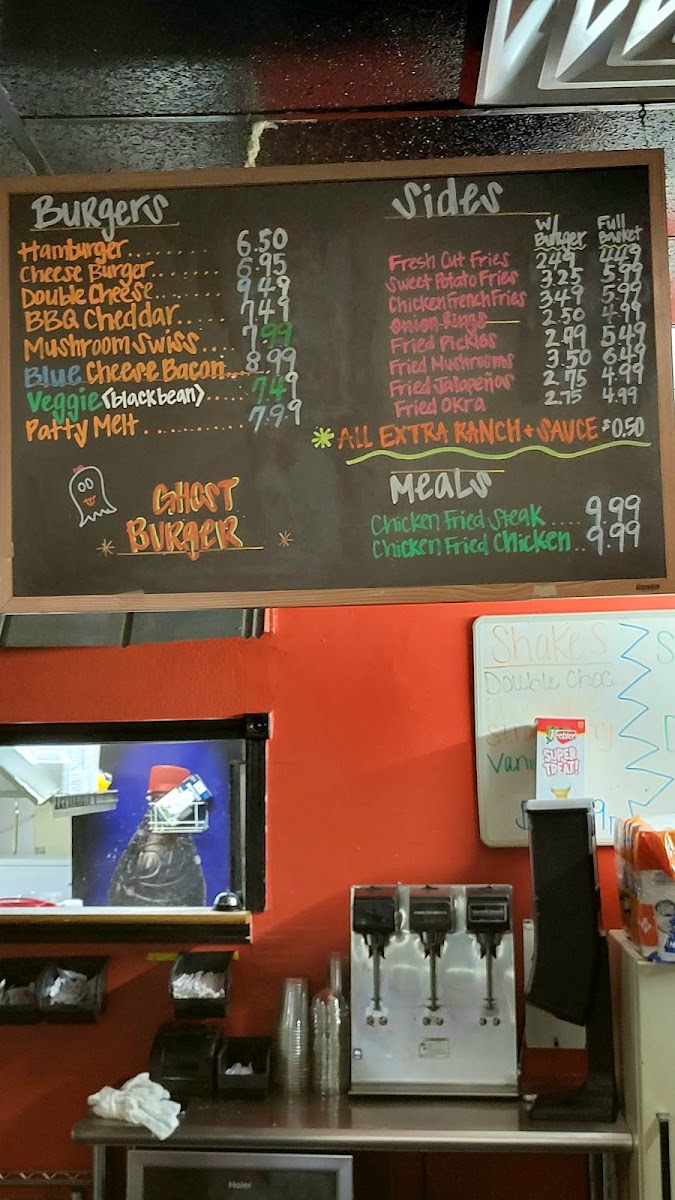 Burgers
Hamburger........ 6.50
Cheese Burger....... 6.95
Double Cheese...... 9.49
BBQ Cheddar..... 7.49
Mushroom Swiss.... 7.99
Blue Cheese Bacon.... 8.99
Veggie (black bean)..... 7.49
Patty Melt.......... 7.99
GHOST
BURGER
Sides
W/ Burger Full Basket
Fresh Cut Fries 2.49 4.49
Sweet Potato Fries 3.25 5.99
Chicken French Fries 3.49 5.99
Onion Rings 2.50 4.99
Fried Pickles 2.99 5.49
Fried Mushrooms 3.50 6.49
Fried Jalapeños 2.75 4.99
Fried Okra 2.75 4.99
* ALL EXTRA RANCH + SAUCE $0.50
Meals
Chicken Fried Steak..... 9.99
Chicken Fried Chicken.. 9.99
Shakes
Double Choc
Keebler
SUPER
TREAT!
Haier